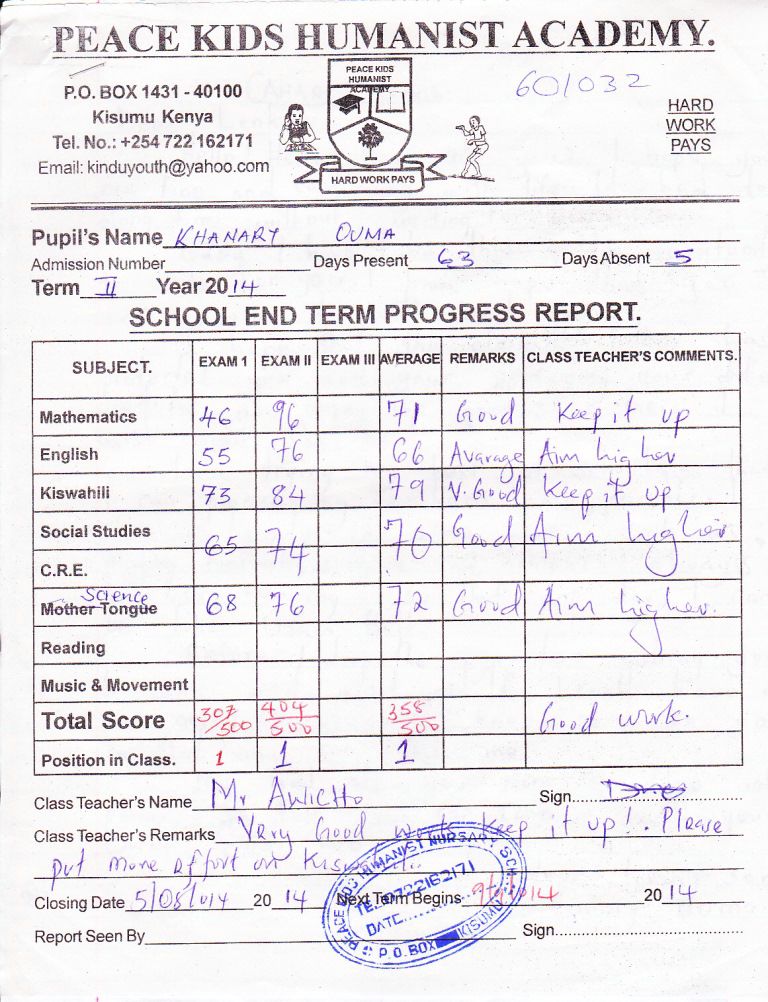 PEACE KIDS HUMANIST ACADEMY.
P.O. BOX 1431 - 40100
Kisumu Kenya
Tel. No.: +254 722 162171
Email: kinduyouth@yahoo.com
PEACE KIDS
HUMANIST
ACADEMY
HARD WORK PAYS
601032
HARD
WORK
PAYS
Pupil's Name KHANARY OUMA
Admission Number Days Present 63 Days Absent 5
Term II Year 2014
SCHOOL END TERM PROGRESS REPORT.
SUBJECT. EXAM 1 EXAM II EXAM III AVERAGE REMARKS CLASS TEACHER'S COMMENTS.
Mathematics 46 96 71 Good Keep it up
English 55 76 66 Avarage Aim higher
Kiswahili 73 84 79 V. Good Keep it up
Social Studies 65 74 70 Good Aim higher
C.R.E.
Science
Mother Tongue 68 76 72 Good Aim higher.
Reading
Music & Movement
Total Score 307/500 404/500 358/500 Good work.
Position in Class. 1 1 1
Class Teacher's Name Mr Sign
Class Teacher's Remarks Very Good work keep it up!. Please
put more effort on
Closing Date 5/08/014 2014 Next Term Begins 2014
Report Seen By Sign
PEACE KIDS HUMANIST NURSARY SCH
TEL: 0722162171
DATE
P.O. BOX KISUMU